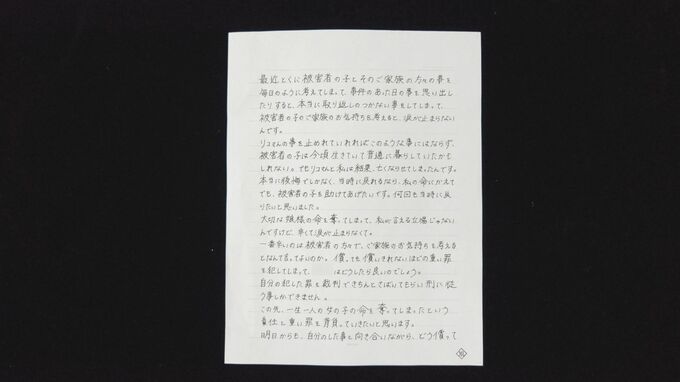 最近とくに被害者の子とそのご家族の方々の事を
毎日のように考えてしまって、事件のあった日の事を思い出し
たりすると、本当に取り返しのつかない事をしてしまって、
被害者の子のご家族のお気持ちを考えると、涙が止まらない
んです。
リコさんの事を止めれていれればこのような事にはならず、
被害者の子は今頃生きていて普通に暮らしていたかも
しれない。でもリコさんと私は結果、亡くならせてしまったんです。
本当に後悔でしかなく、当時に戻れるなら、私の命にかえて
でも、被害者の子を助けてあげたいです。何回も当時に戻
りたいと思いました。
大切な娘様の命を奪ってしまって、私が言える立場じゃない
んですけど、辛くて涙が止まらなくて。
一番辛いのは被害者の方々で、ご家族のお気持ちを考える
となんて言ってよいのか。償っても償いきれないほどの重い罪
を犯してしまって、 はどうしたら良いのでしょう。
自分の犯した罪を裁判できちんとさばいてもらい刑に従
う事しかできません。
この先、一生一人の女の子の命を奪ってしまったという
責任と重い罪を背負っていきたいと思います。
明日からも、自分のした事と向き合いながら、どう償って